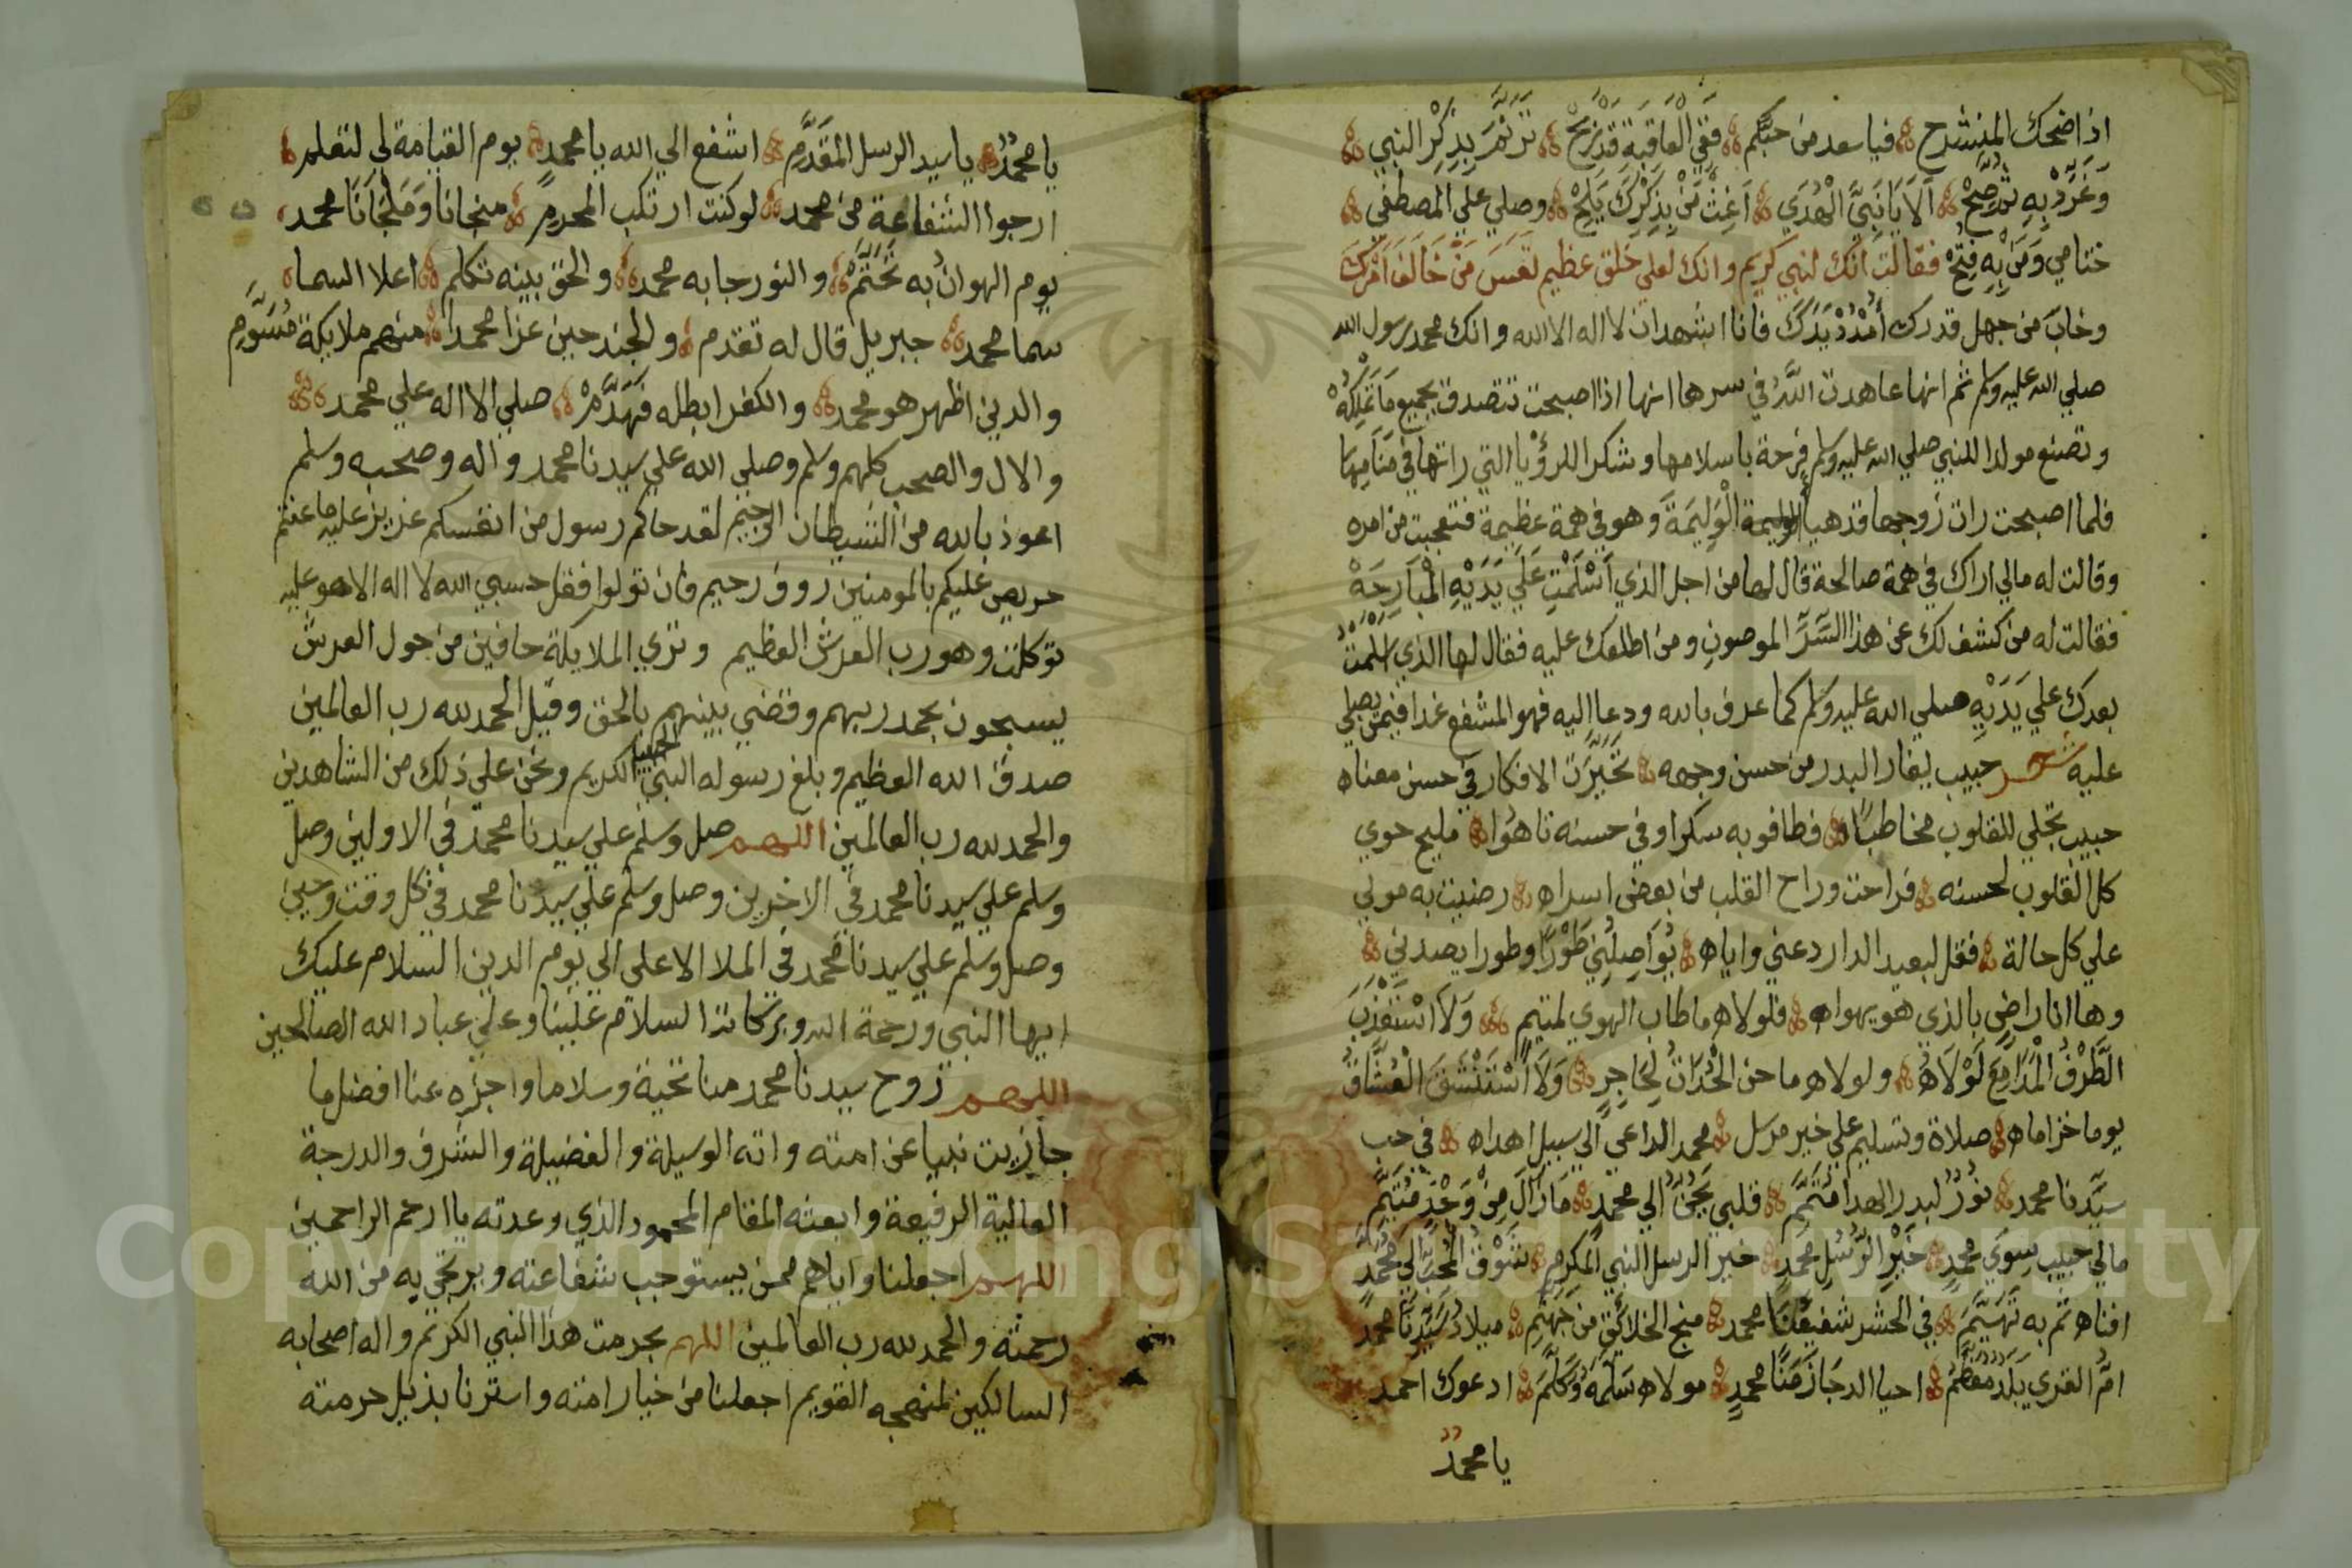 اذا ضحك المنشرح فيا سعد من حبكم ففي العاقبة قد ربح ترنم بذكر النبي
وغرد به تصح الا يا نبي الهدي اغث من بذكرك يلح وصلي علي المصطفي
ختامي ومن به فتح فقالت انك لنبي كريم وانك لعلي خلق عظيم تعس من خالف امرك
وخاب من جهل قدرك أمدد يدك فانا اشهد ان لا اله الا الله وانك محمد رسول الله
صلي الله عليه وسلم ثم انها عاهدت الله في سرها انها اذا اصبحت تتصدق بجميع ما تملكه
وتصنع مولدا للنبي صلي الله عليه وسلم فرحة باسلامها وشكرا للرؤيا التي راتها في منامها
فلما اصبحت رات زوجها قد هيا الوليمة الوليمة وهو في همة عظيمة فتعجبت من امره
وقالت له مالي اراك في همة صالحة قال لها من اجل الذي اسلمت علي يديه البارحة
فقالت له من كشف لك عن هذا السر الموصون ومن اطلعك عليه فقال لها الذي اسلمت
بعدك علي يديه صلي الله عليه وسلم كما عرف بالله ودعا اليه فهو المشفع غدا فيمن يصلي
عليه شعر حبيب يغار البدر من حسن وجهه تحيرت الافكار في حسن معناه
حبيب تجلي للقلوب مخاطبا فطافو به سكرا وفي حسنه تاهوا مليح حوي
كل القلوب لحسنه فراحت وراح القلب من بعض اسراه رضيت به مولي
علي كل حالة فقل لبعيد الدار دعني واياه يواصلني طورا وطورا يصدني
وها انا راض بالذي هو يهواه فلولاه ما طاب الهوي لمتيم ولا استعذب
الطرف المدامع لولاه ولولاه ما حن الحداة لحاجر ولا استنشق العشاق
يوما خزاماه صلاة وتسليم علي خير مرسل محمد الداعي الي سبيل اهداه في حب
سيدنا محمد نور لبدر الهدا متمم قلبي يحن الي محمد ما زال من وجد متيم
مالي حبيب سوي محمد خير الرسل محمد خير الرسل النبي المكرم شوق المحب الي محمد
افناه ثم به تهيم في الحشر شفيعنا محمد منج الخلائق من جهنم ميلاد سيدنا محمد
ام القري بلد معظم احيا الدجا زمنا محمد مولاه سلمه وكلم ادعوك احمد
يا محمد
يا محمد يا سيد الرسل المقدم اشفع الي الله يا محمد يوم القيامة لي لتعلم
ارجوا الشفاعة من محمد لو كنت ارتكب المحرم منجانا وملجانا محمد
يوم الهوان به نحتم والنور جا به محمد والحق بينه تكلم اعلا السما
سما محمد جبريل قال له تقدم والجند حين غزا محمد منهم ملايكة مسوم
والدين اظهر هو محمد والكفر ابطله فهدم صلي الا اله علي محمد
والال والصحب كلهم وسلم وصلي الله علي سيدنا محمد واله وصحبه وسلم
اعوذ بالله من الشيطان الرجيم لقد جاكم رسول من انفسكم عزيز عليه ما عنتم
حريص عليكم بالمومنين روف رحيم فان تولوا فقل حسبي الله لا اله الا هو عليه
توكلت وهو رب العرش العظيم وتري الملايكة حافين من حول العرش
يسبحون بحمد ربهم وقضي بينهم بالحق وقيل الحمد لله رب العالمين
صدق الله العظيم وبلغ رسوله النبي الحبيب الكريم ونحن علي ذلك من الشاهدين
والحمد لله رب العالمين اللهم صل وسلم علي سيدنا محمد في الاولين وصل
وسلم علي سيدنا محمد في الاخرين وصل وسلم علي سيدنا محمد في كل وقت وحين
وصل وسلم علي سيدنا محمد في الملا الاعلي الي يوم الدين السلام عليك
ايها النبي ورحمة الله وبركاته السلام علينا وعلي عباد الله الصالحين
اللهم زوح سيدنا محمد منا تحية وسلاما واجزه عنا افضل ما
جازيت نبيا عن امته واته الوسيلة والفضيلة والشرف والدرجة
العالية الرفيعة وابعثه المقام المحمود الذي وعدته يا ارحم الراحمين
اللهم اجعلنا واياهم ممن يستوجب شفاعته ويرتجي به من الله
رحمته والحمد لله رب العالمين اللهم بحرمت هذا النبي الكريم واله اصحابه
السالكين لمنهجه القويم اجعلنا من خيار امته واسترنا بذيل حرمته
Copyright © King Saud University